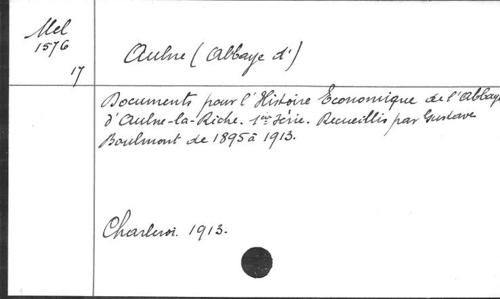 Mel
1576
17
Aulne (Abbaye d')
Documents pour l'Histoire Economique de l'Abbaye
d'Aulne-la-Riche. 1re Série. Recueillis par Gustave
Boulmont de 1895 à 1913.
Charleroi. 1913.